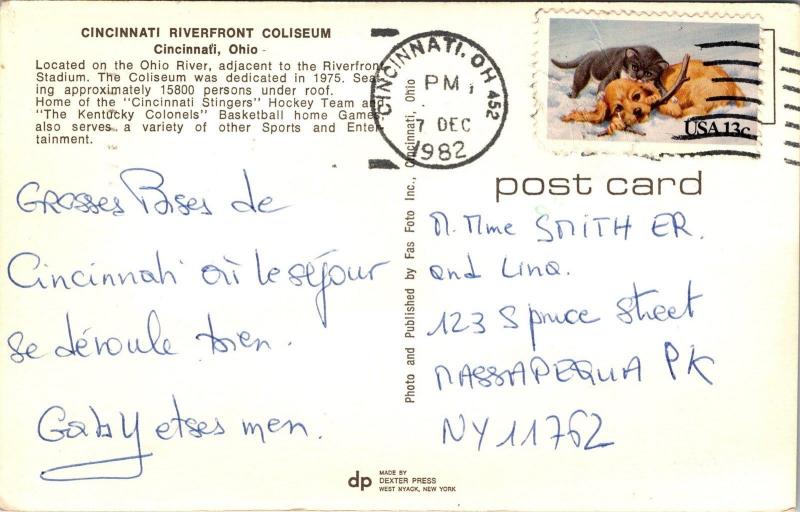 CINCINNATI RIVERFRONT COLISEUM
Cincinnati, Ohio -
Located on the Ohio River, adjacent to the Riverfron
Stadium. The Coliseum was dedicated in 1975. Seat
ing approximately 15800 persons under roof.
Home of the "Cincinnati Stingers" Hockey Team a
"The Kentucky Colonels" Basketball home Games
also serves a variety of other Sports and Enter
tainment.
CINCINNATI, OH 452
PM
7 DEC
1982
USA 13c
post card
GROSSES Bises de
Cincinnati où le séjour
se déroule bien.
Gaby et ses men.
M. Mme SMITH ER.
and Lina.
123 Spruce Street
MASSAPEQUA PK
NY 11762
Photo and Published by Fas Foto Inc., Cincinnati, Ohio
dp
MADE BY
DEXTER PRESS
WEST NYACK, NEW YORK